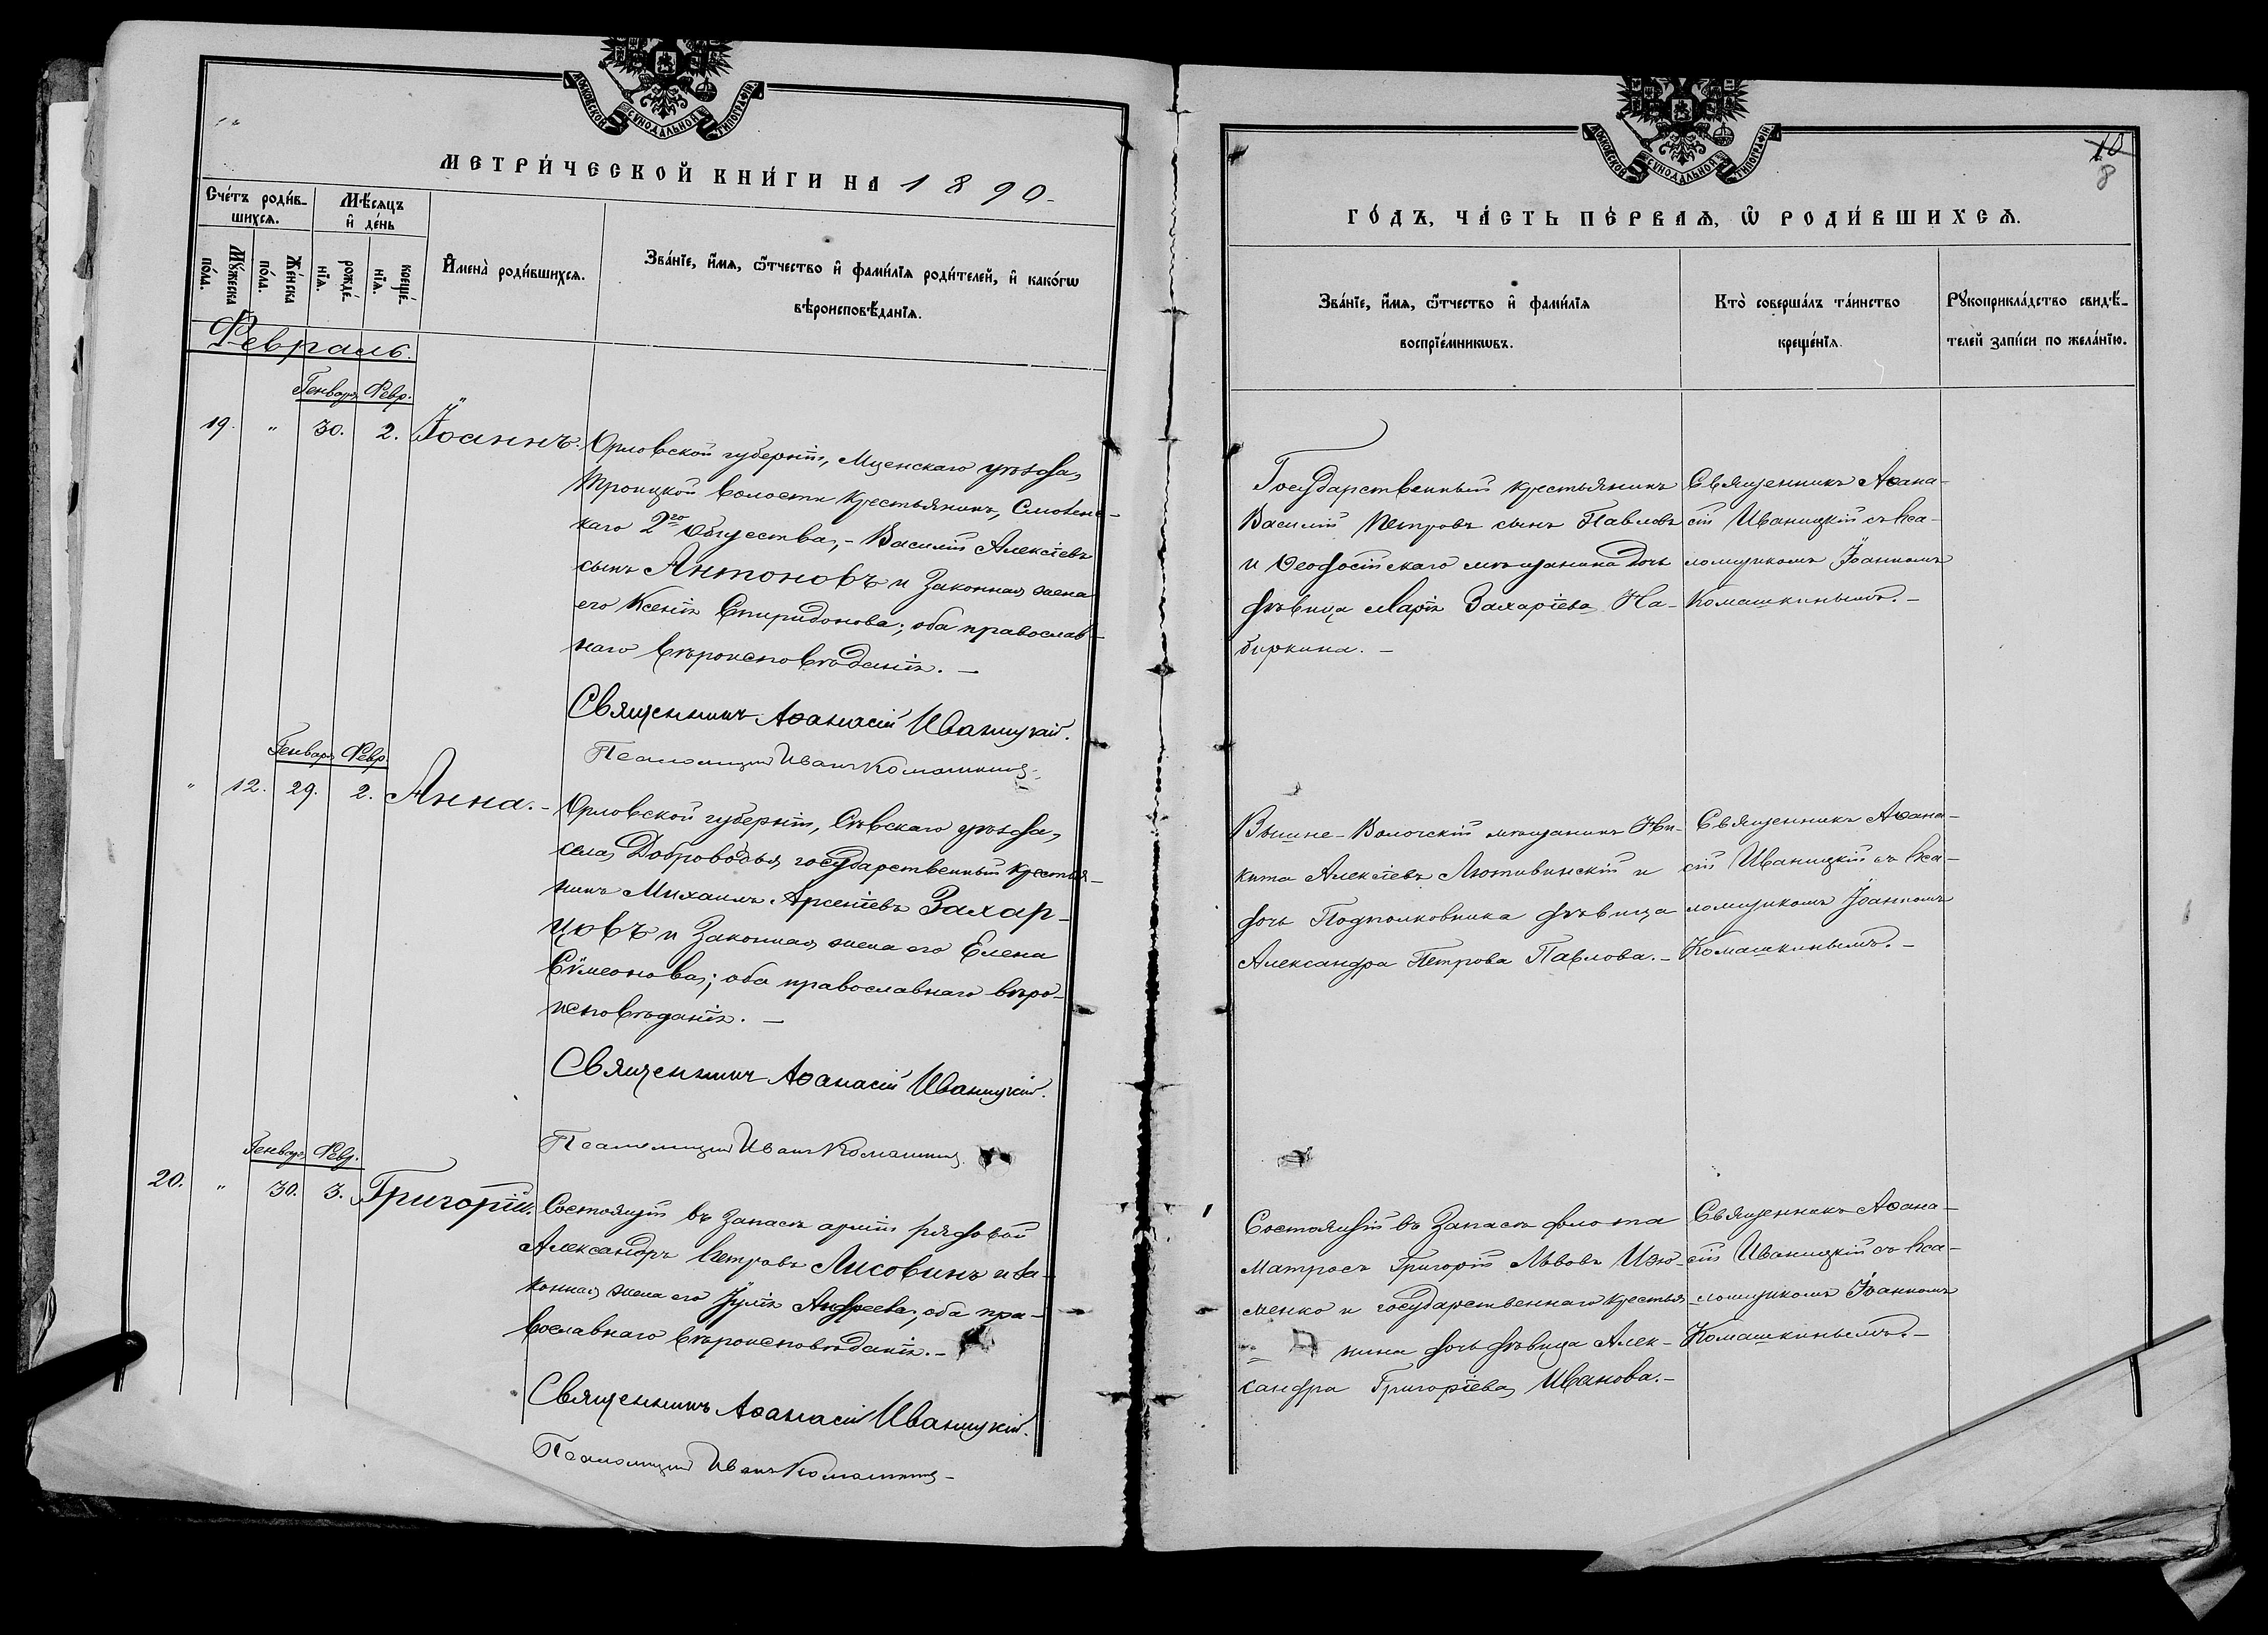 МОСКОВСКОЙ СѴНОДАЛЬНОЙ ТИПОГРАФІИ
МЕТРИ́ЧЕСКОЙ КНИ́ГИ НА 1890.
Сче́тъ роди́в-
шихсѧ.
Мѣ́сѧцъ
и҆ де́нь
Мꙋ́жеска
по́ла.
Же́нска
по́ла.
рожде́-
нїѧ.
креще́-
нїѧ.
И҆мена̀ роди́вшихсѧ.
Зва́нїе, и҆́мѧ, ѻ҆́тчество и҆ фами́лїѧ роди́телей, и҆ како́гѡ
вѣроисповѣ́данїѧ.
Февраль.
Генварь Февр.
19. " 30. 2. Іоаннъ.
Орловской губерніи, Мценскаго уѣзда,
Троицкой волости крестьянинъ,
каго 2го Общества, - Василій Алексіевъ
сынъ Антоновъ и законная жена
его Ксенія Спиридонова; оба православ-
наго вѣроисповѣданія. -
Священникъ Аѳанасій Иваницкій.
Псаломщикъ Иванъ Комашкинъ.
Генварь Февр.
" 12. 29. 2. Анна. -
Орловской губерніи, Сѣвскаго уѣзда,
села Доброводья государственный крестья-
нинъ Михаилъ Арсеніевъ Захар-
цовъ и законная жена его Елена
Сѵмеонова; оба православнаго вѣро-
исповѣданія. -
Священникъ Аѳанасій Иваницкій.
Псаломщикъ Иванъ Комашкинъ.
Генварь Февр.
20. " 30. 3. Григорій.
Состоящій въ запасѣ арміи рядовой
Александръ Петровъ Лисовинъ и за-
конная жена его Іулія Андреева; оба пра-
вославнаго вѣроисповѣданія. -
Священникъ Аѳанасій Иваницкій.
Псаломщикъ Иванъ Комашкинъ
МОСКОВСКОЙ СѴНОДАЛЬНОЙ ТИПОГРАФІИ
10
8
ГО́ДЪ, ЧА́СТЬ ПЕ́РВАѦ, Ѡ҆ РОДИ́ВШИХСѦ.
Зва́нїе, и҆́мѧ, ѻ҆́тчество и҆ фами́лїѧ
воспрїе́мникѡвъ.
Кто̀ соверша́лъ та́инство
креще́нїѧ.
Рꙋкоприкла́дство свидѣ́-
телей за́писи по жела́нїю.
Государственный крестьянинъ
Василій Петровъ сынъ Павловъ
и Ѳеодосійскаго мѣщанина дочь
дѣвица Марія Захаріева На-
биркина. -
Священникъ Аѳана-
сій Иваницкій съ Пса-
ломщикомъ Іоанномъ
Комашкинымъ. -
Вышне-Волочскій мѣщанинъ Ни-
кита Алексіевъ Лютивинскій и
дочь Подполковника дѣвица
Александра Петрова Павлова. -
Священникъ Аѳана-
сій Иваницкій съ Пса-
ломщикомъ Іоанномъ
Комашкинымъ. -
Состоящій въ запасѣ флота
матросъ Григорій Львовъ Изю-
менко и государственнаго крестья-
нина дочь дѣвица Алек-
сандра Григоріева Иванова. -
Священникъ Аѳана-
сій Иваницкій съ Пса-
ломщикомъ Іоанномъ
Комашкинымъ. -